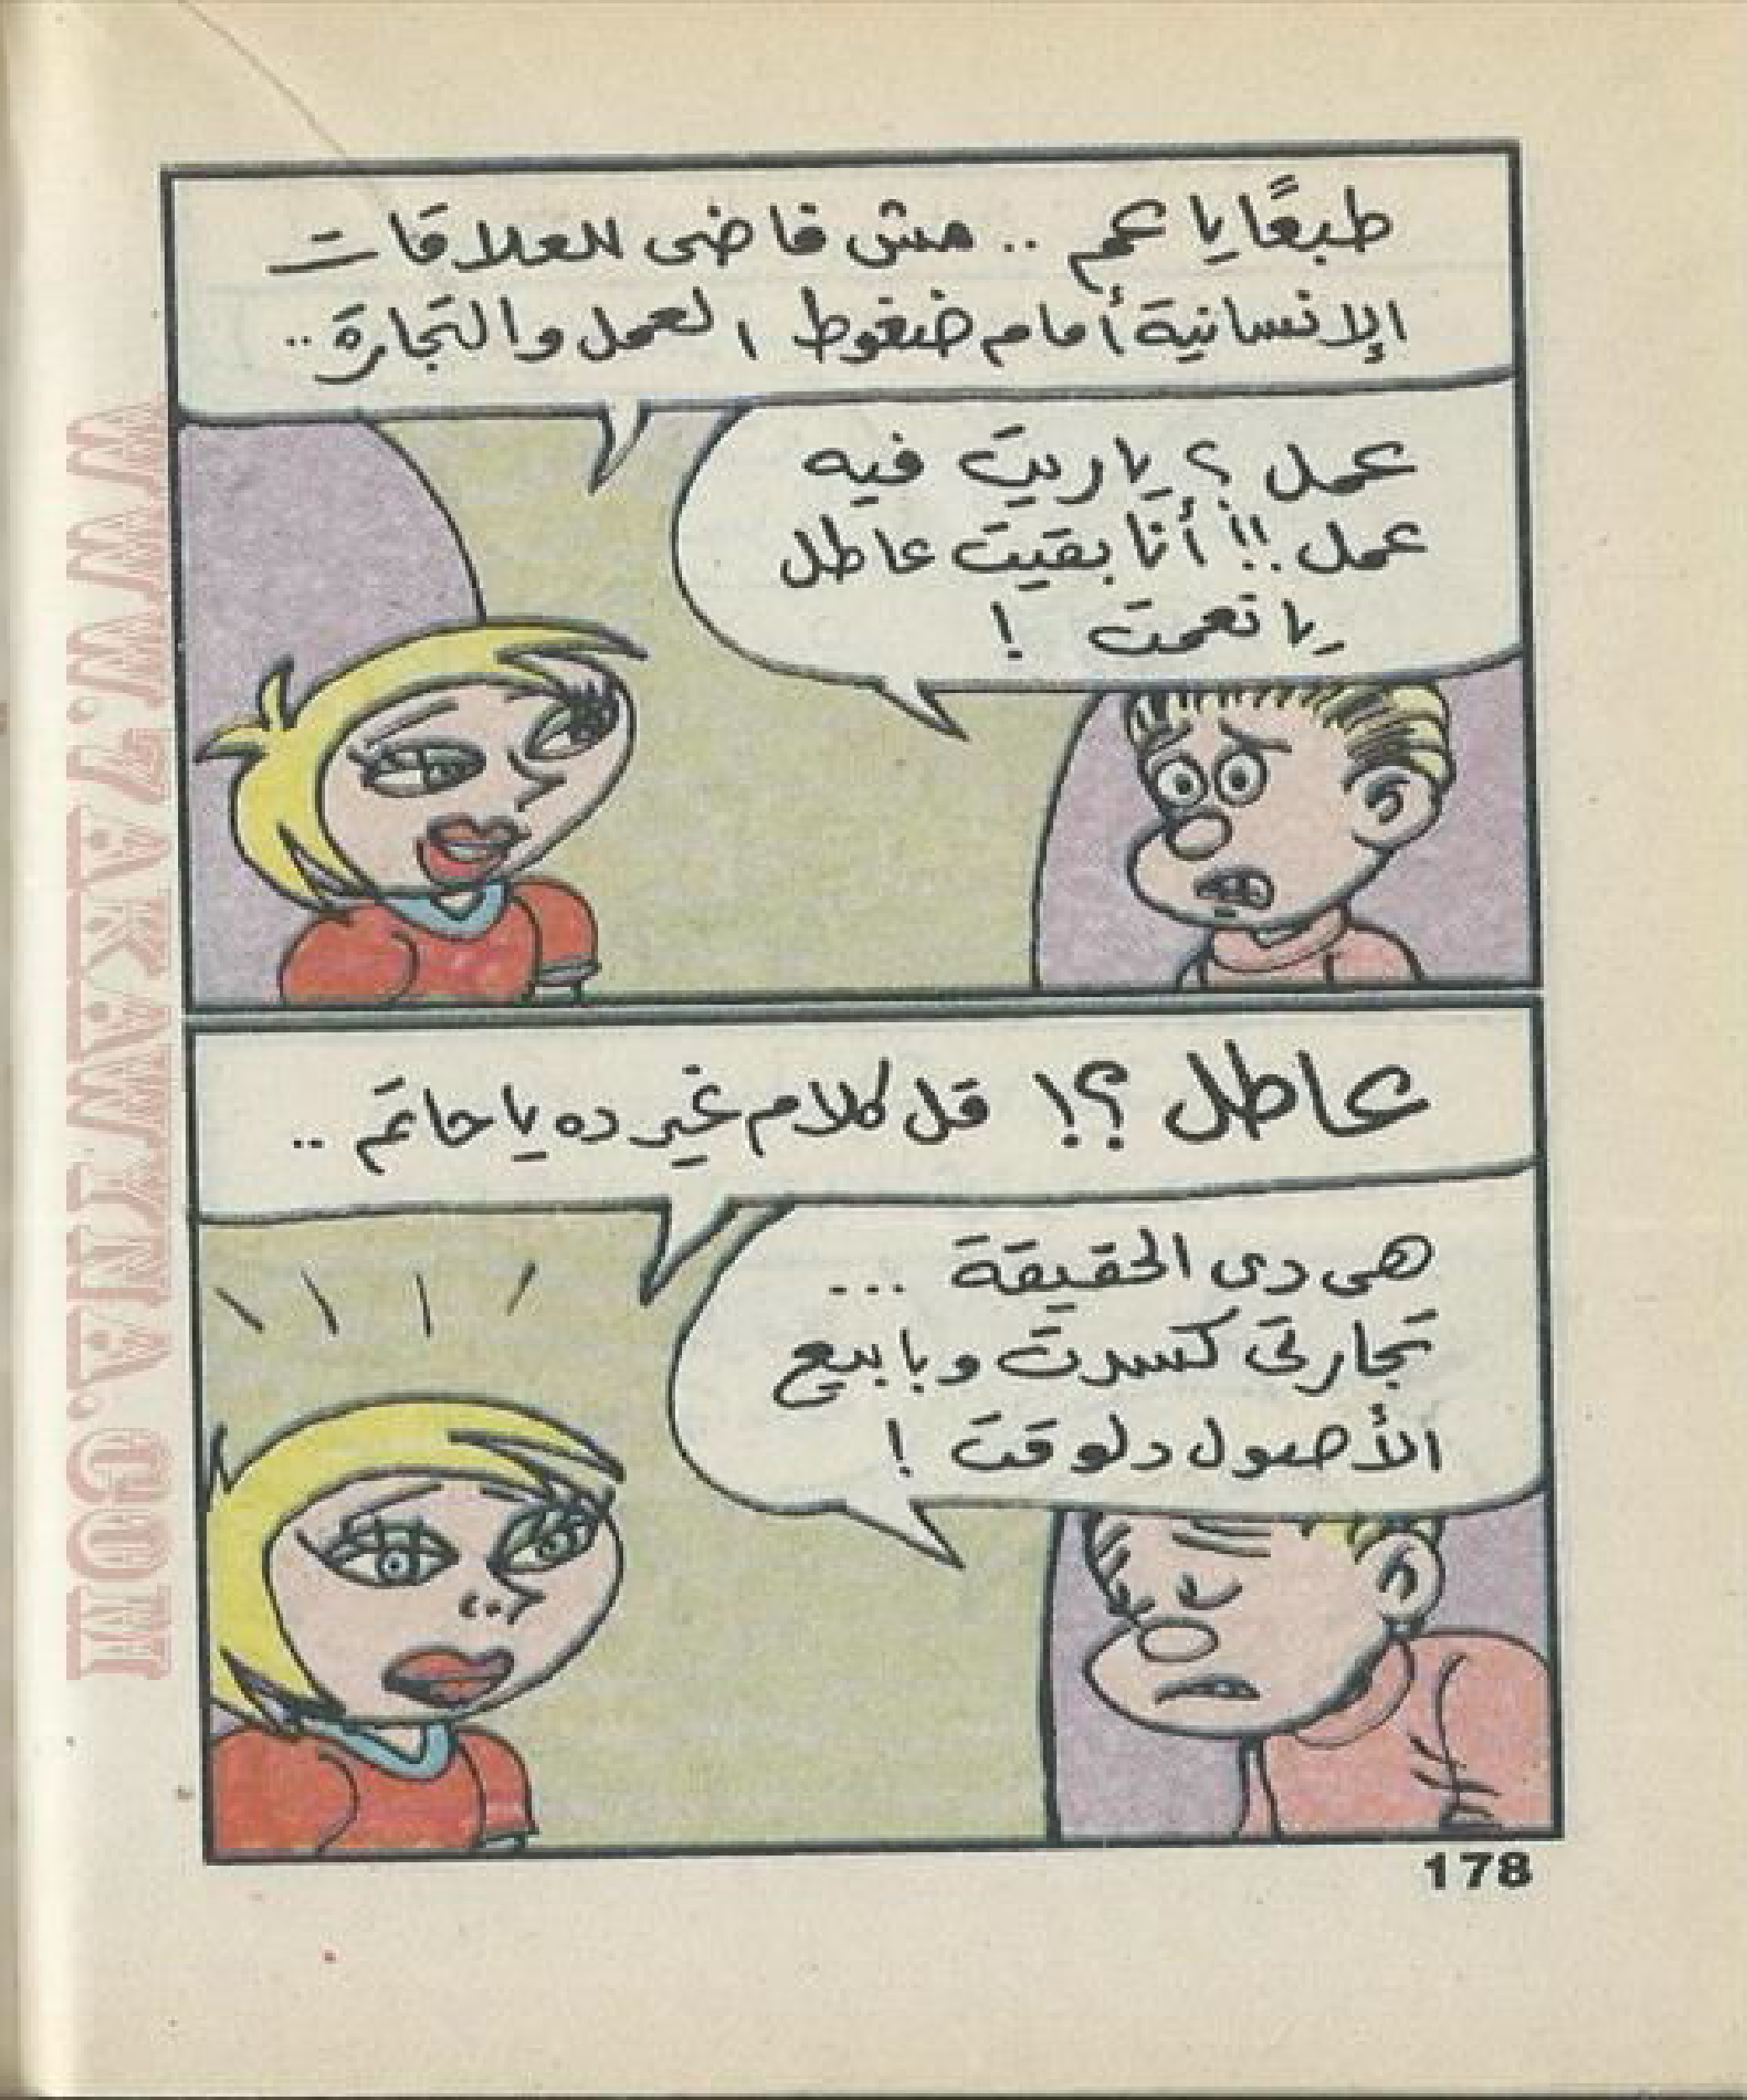 طبعًا يا عم .. مش فاضى للعلاقات
الإنسانية أمام ضغوط العمل والتجارة ..
عمل ؟ ياريت فيه
عمل !! أنا بقيت عاطل
يا نعمت !
عاطل ؟! قل كلام غير ده يا حاتم ..
هى دى الحقيقة ...
تجارتى كسدت وبابيع
الأصول دلوقت !
178
WWW.7AKAWITNA.COM